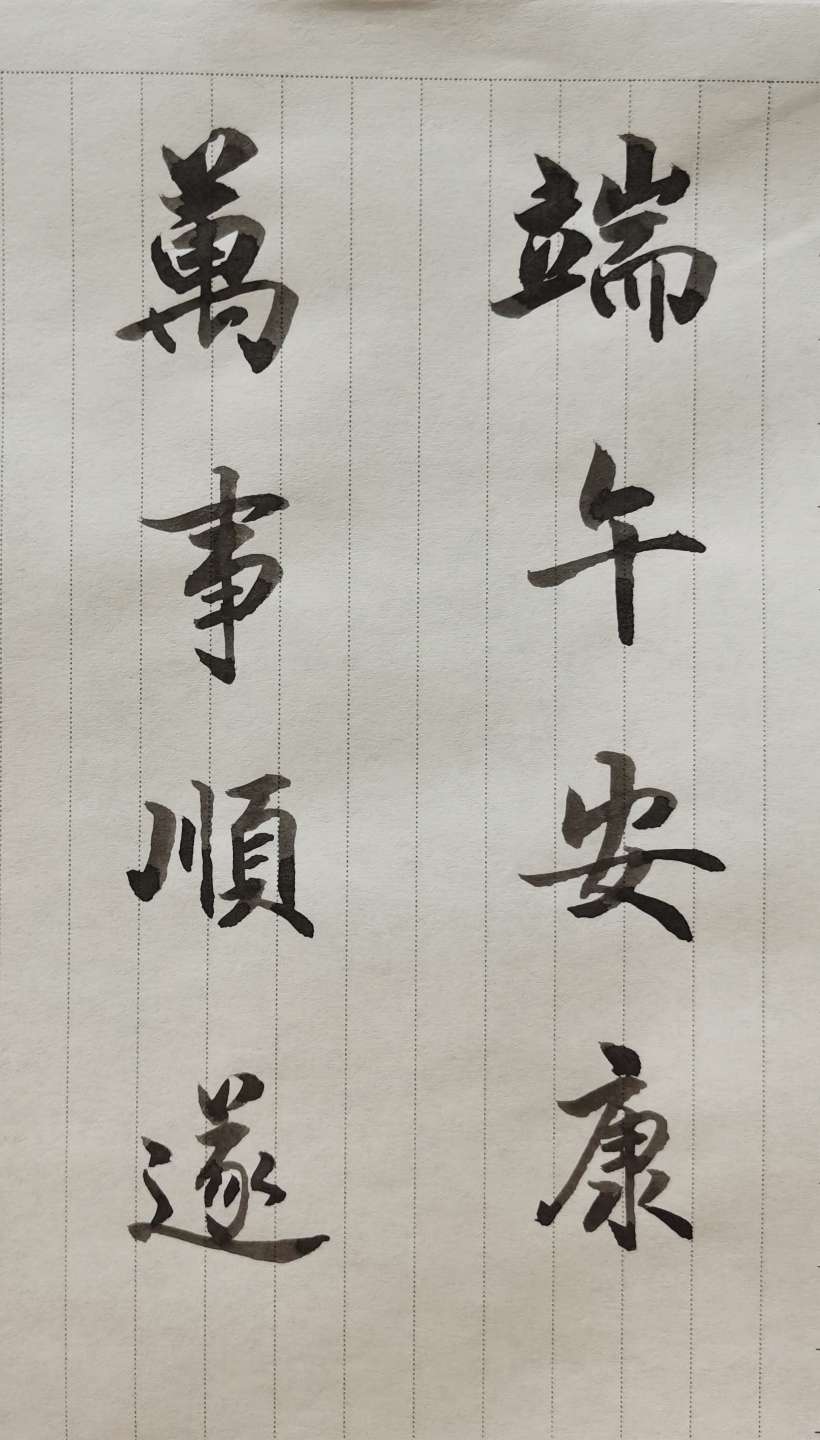 端午安康
萬事順遂